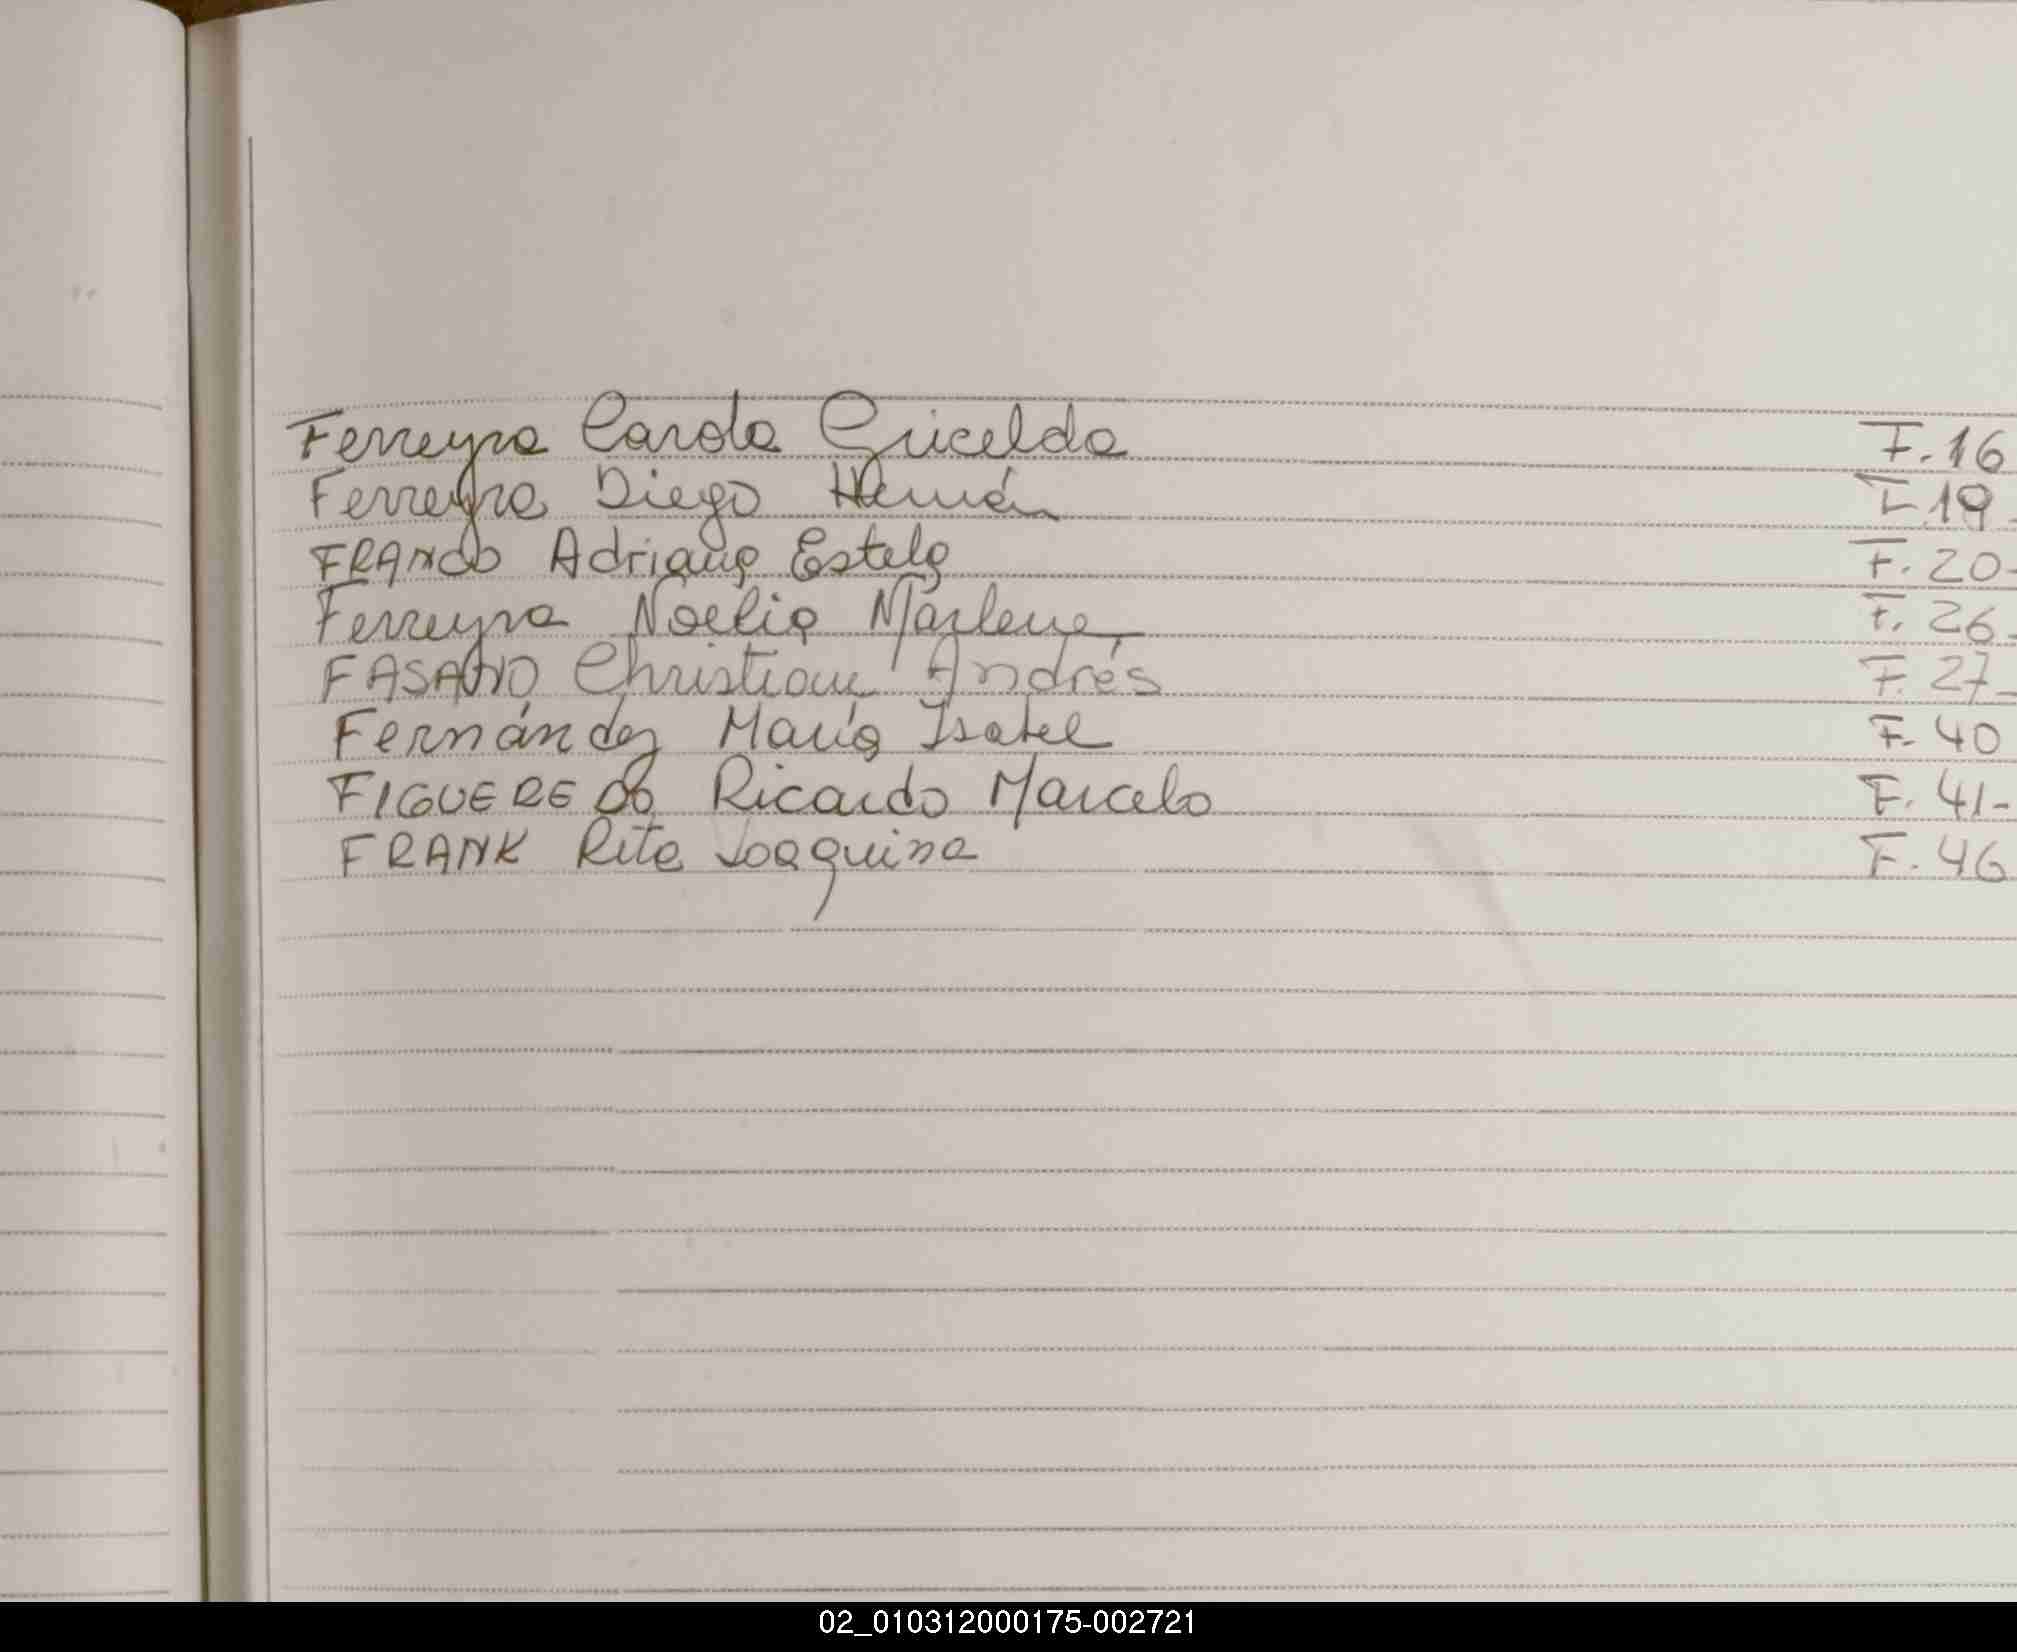 Ferreyra Carola Gricelda F.16
Ferreyra Diego Hernán F.19.
FRANCO Adriana Estela F.20-
Ferreyra Noelia Marlene F.26.
FASANO Christian Andrés F.27-
Fernández María Isabel F.40
FIGUEREDO Ricardo Marcelo F.41-
FRANK Rita Joaquina F.46
02_010312000175-002721